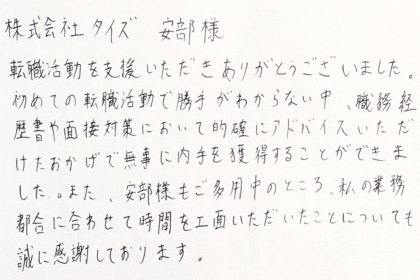 株式会社タイズ 安部様
転職活動を支援いただきありがとうございました。
初めての転職活動で勝手がわからない中、職務経
歴書や面接対策において的確にアドバイスいただ
けたおかげで無事に内手を獲得することができま
した。また、安部様もご多用中のところ、私の業務
都合に合わせて時間を工面いただいたことについても
誠に感謝しております。